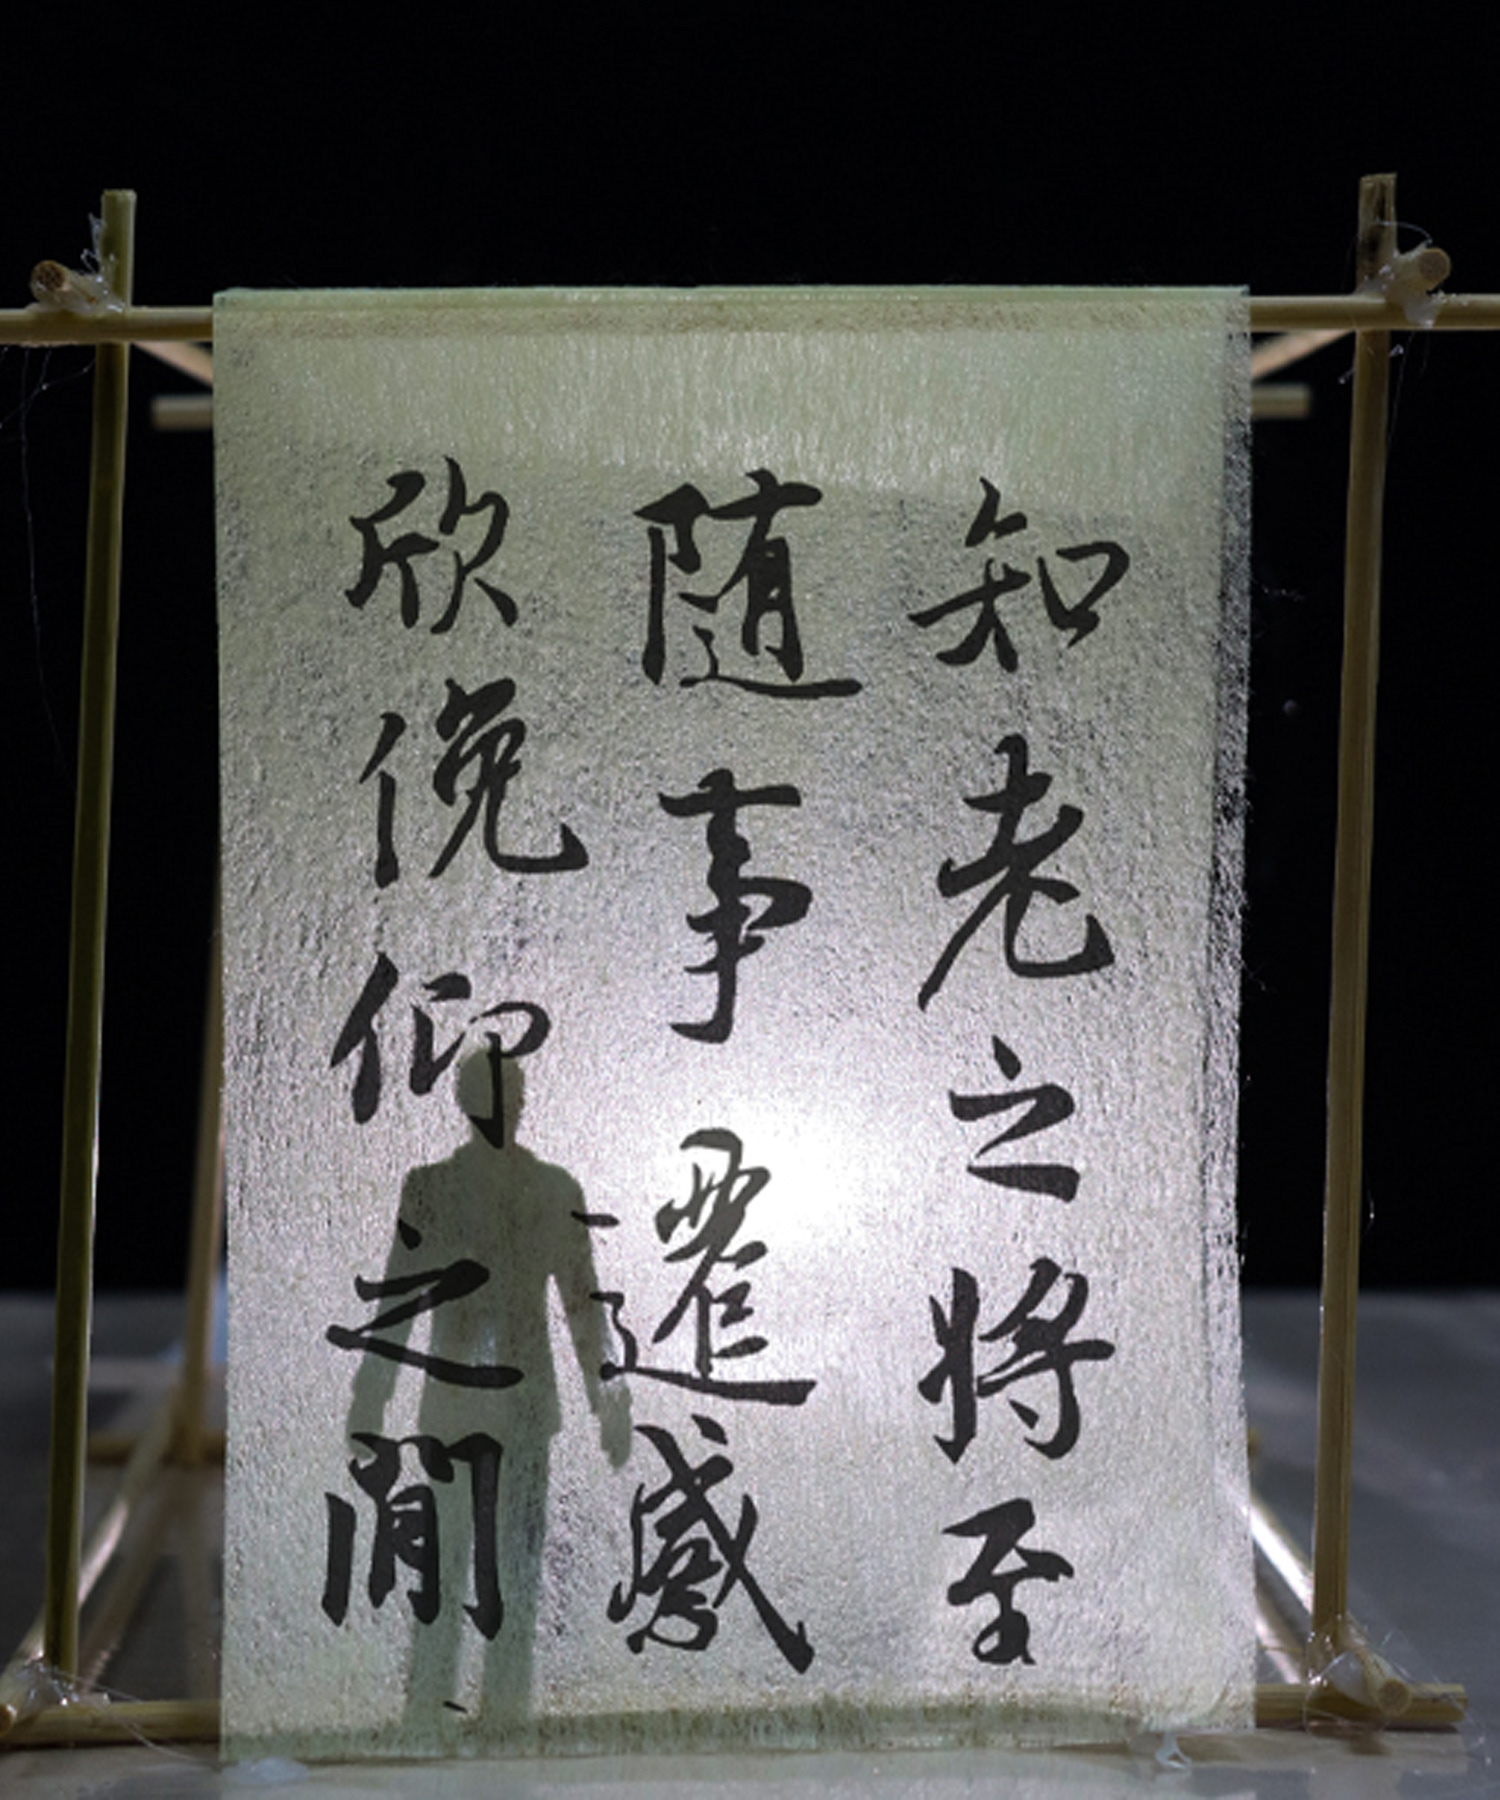 知老之將至
随事遷感
欣俛仰之閒